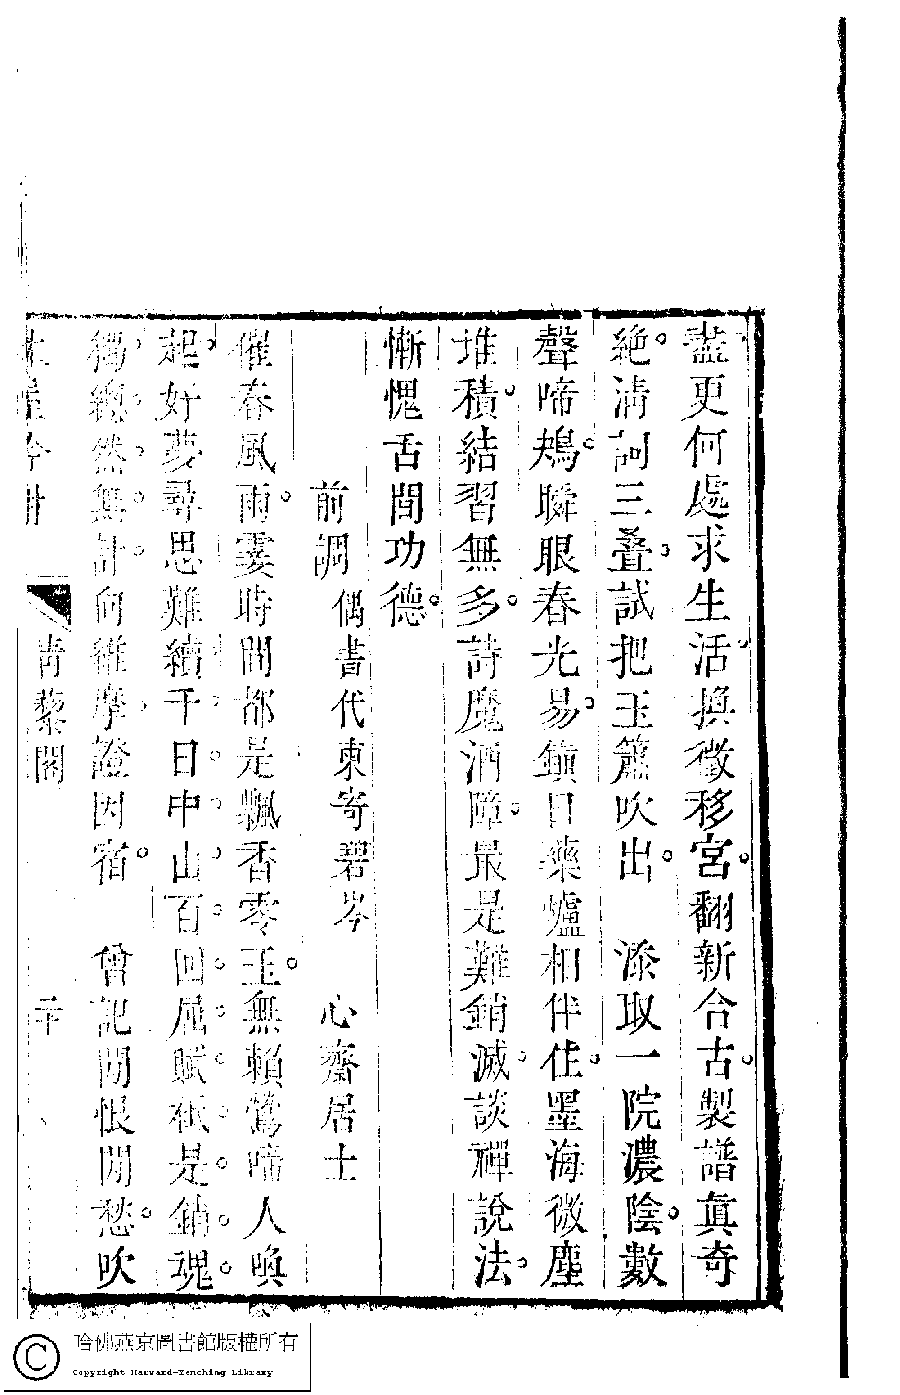 盡更何處求生活換徵移宮翻新合古製譜眞奇
絶淸詞三叠試把玉簫吹出　添取一院濃陰數
聲啼鴂瞬眼春光易鎮日藥爐相伴住墨海微塵
堆積結習無多詩魔酒障最是難銷滅談禪說法
慚愧舌間功德
前調　偶書代柬寄碧岑　心齋居士
催春風雨霎時間都是飄香零玉無賴鶯啼人喚
起好夢尋思難續千日中山百回屈賦秪是銷魂
獨總然無計向維摩證因宿　曾記閒恨閒愁吹
青藜閣　二十
哈佛燕京圖書館版權所有
Copyright Harvard-Yenching Library